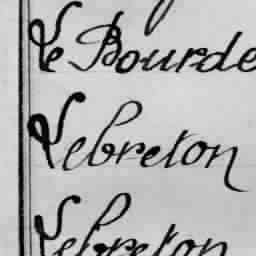 Le Bourde
Lebreton
Lebreton